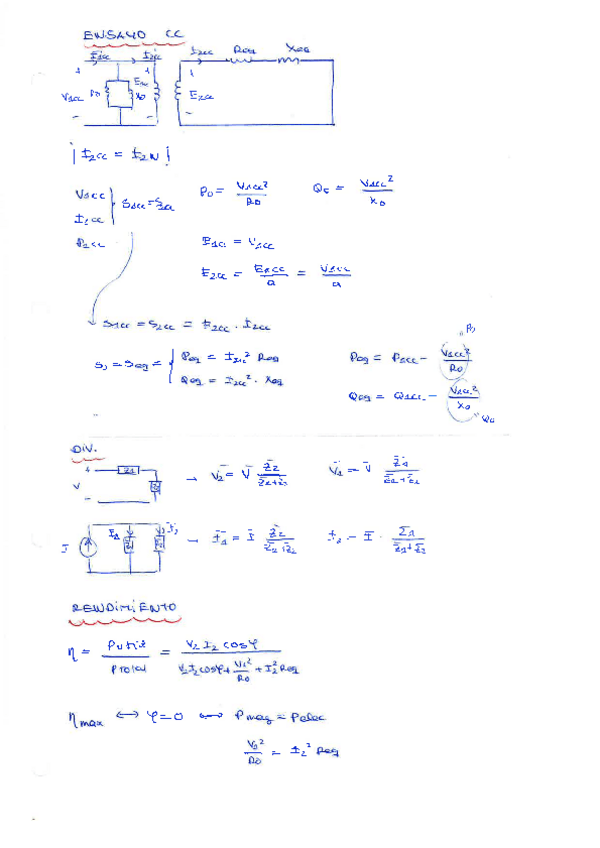 ENSAYO CC
I1cc I2cc I2cc Req Xeq
+ + +
V1cc R0 X0 E1cc E2cc
- - -
¡ I2cc = I2N !
V1cc
I1cc } S1cc = S2cc P0 = V1cc² / R0 Q0 = V1cc² / X0
P1cc
E1cc = V1cc
E2cc = E1cc / a = V1cc / a
S1cc = S2cc = E2cc · I2cc
P0
Seq = { Peq = I2cc² Req Peq = P1cc - V1cc² / R0
Qeq = I2cc² · Xeq Qeq = Q1cc - V1cc² / X0
Q0
DIV.
+ Z1
V Z2 → V̄2 = V̄ Z̄2 / Z̄1+Z̄2 V̄1 = V̄ Z̄1 / Z̄1+Z̄2
-
I I1 Z1 Z2 I2 → Ī1 = Ī Z̄2 / Z̄1+Z̄2 I2 = Ī · Z1 / Z̄1+Z̄2
RENDIMIENTO
η = Putil / Ptotal = V2 I2 cosφ / V2 I2 cosφ + V1² / R0 + I2² Req
ηmax ⟷ φ=0 ⟷ Pmag = Pelec
V1² / R0 = I2² Req